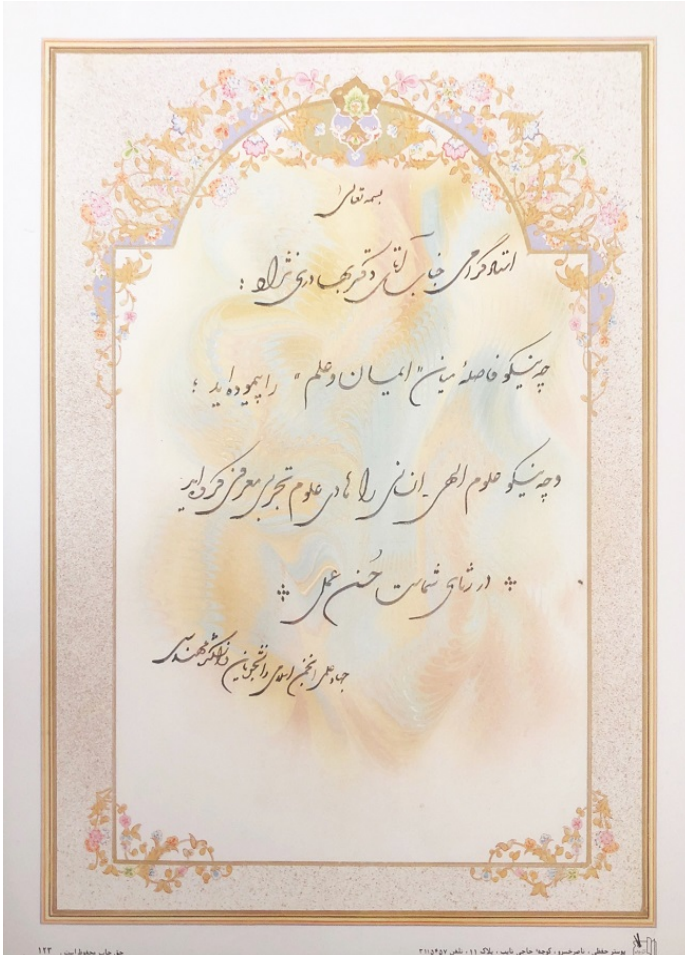 بسمه تعالی
استاد گرامی جناب آقای دکتر بهادری نژاد :
چه نیکو فاصلهٔ میان "ایمان و علم" را پیموده‌اید ؛
و چه نیکو علوم الهی-انسانی را هادی علوم تجربی معرفی کرده‌اید
در رثای شماست حُسن عمل
جهاد علمی انجمن اسلامی دانشجویان دانشکده مهندسی
پوستر حفظی ، ناصرخسرو ، کوچه حاجی نایب ، پلاک ۱۱ ، تلفن ۳۱۱۵۹۵۷
حق چاپ محفوظ است . ۱۲۳